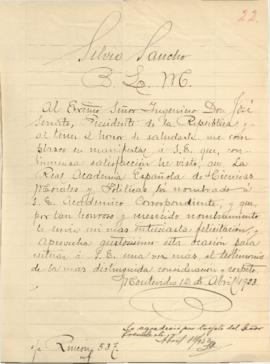 22.
Silvio Sancho
B. L. M.
Al Exmo Señor Ingeniero Don José
Serrato, Presidente de la República y
al tener el honor de saludarle, me com-
plazco en manifestar á S.E. que, con
inmensa satisfacción he visto, que La
Real Academia Española de Ciencias
Morales y Políticas ha nombrado á
S. E. Académico Correspondiente, y que
por tan honroso y merecido nombramiento
le envío mi más entusiasta felicitación, y
aprovecha gustosísimo esta ocasión para
reiterar á S.E. una vez más, el testimonio
de la más distinguida consideración y respeto.
Montevideo 12 de Abril 1923.
Se agradeció por tarjeta del Señor
Presidente
Abril
s/c Rincon 537.